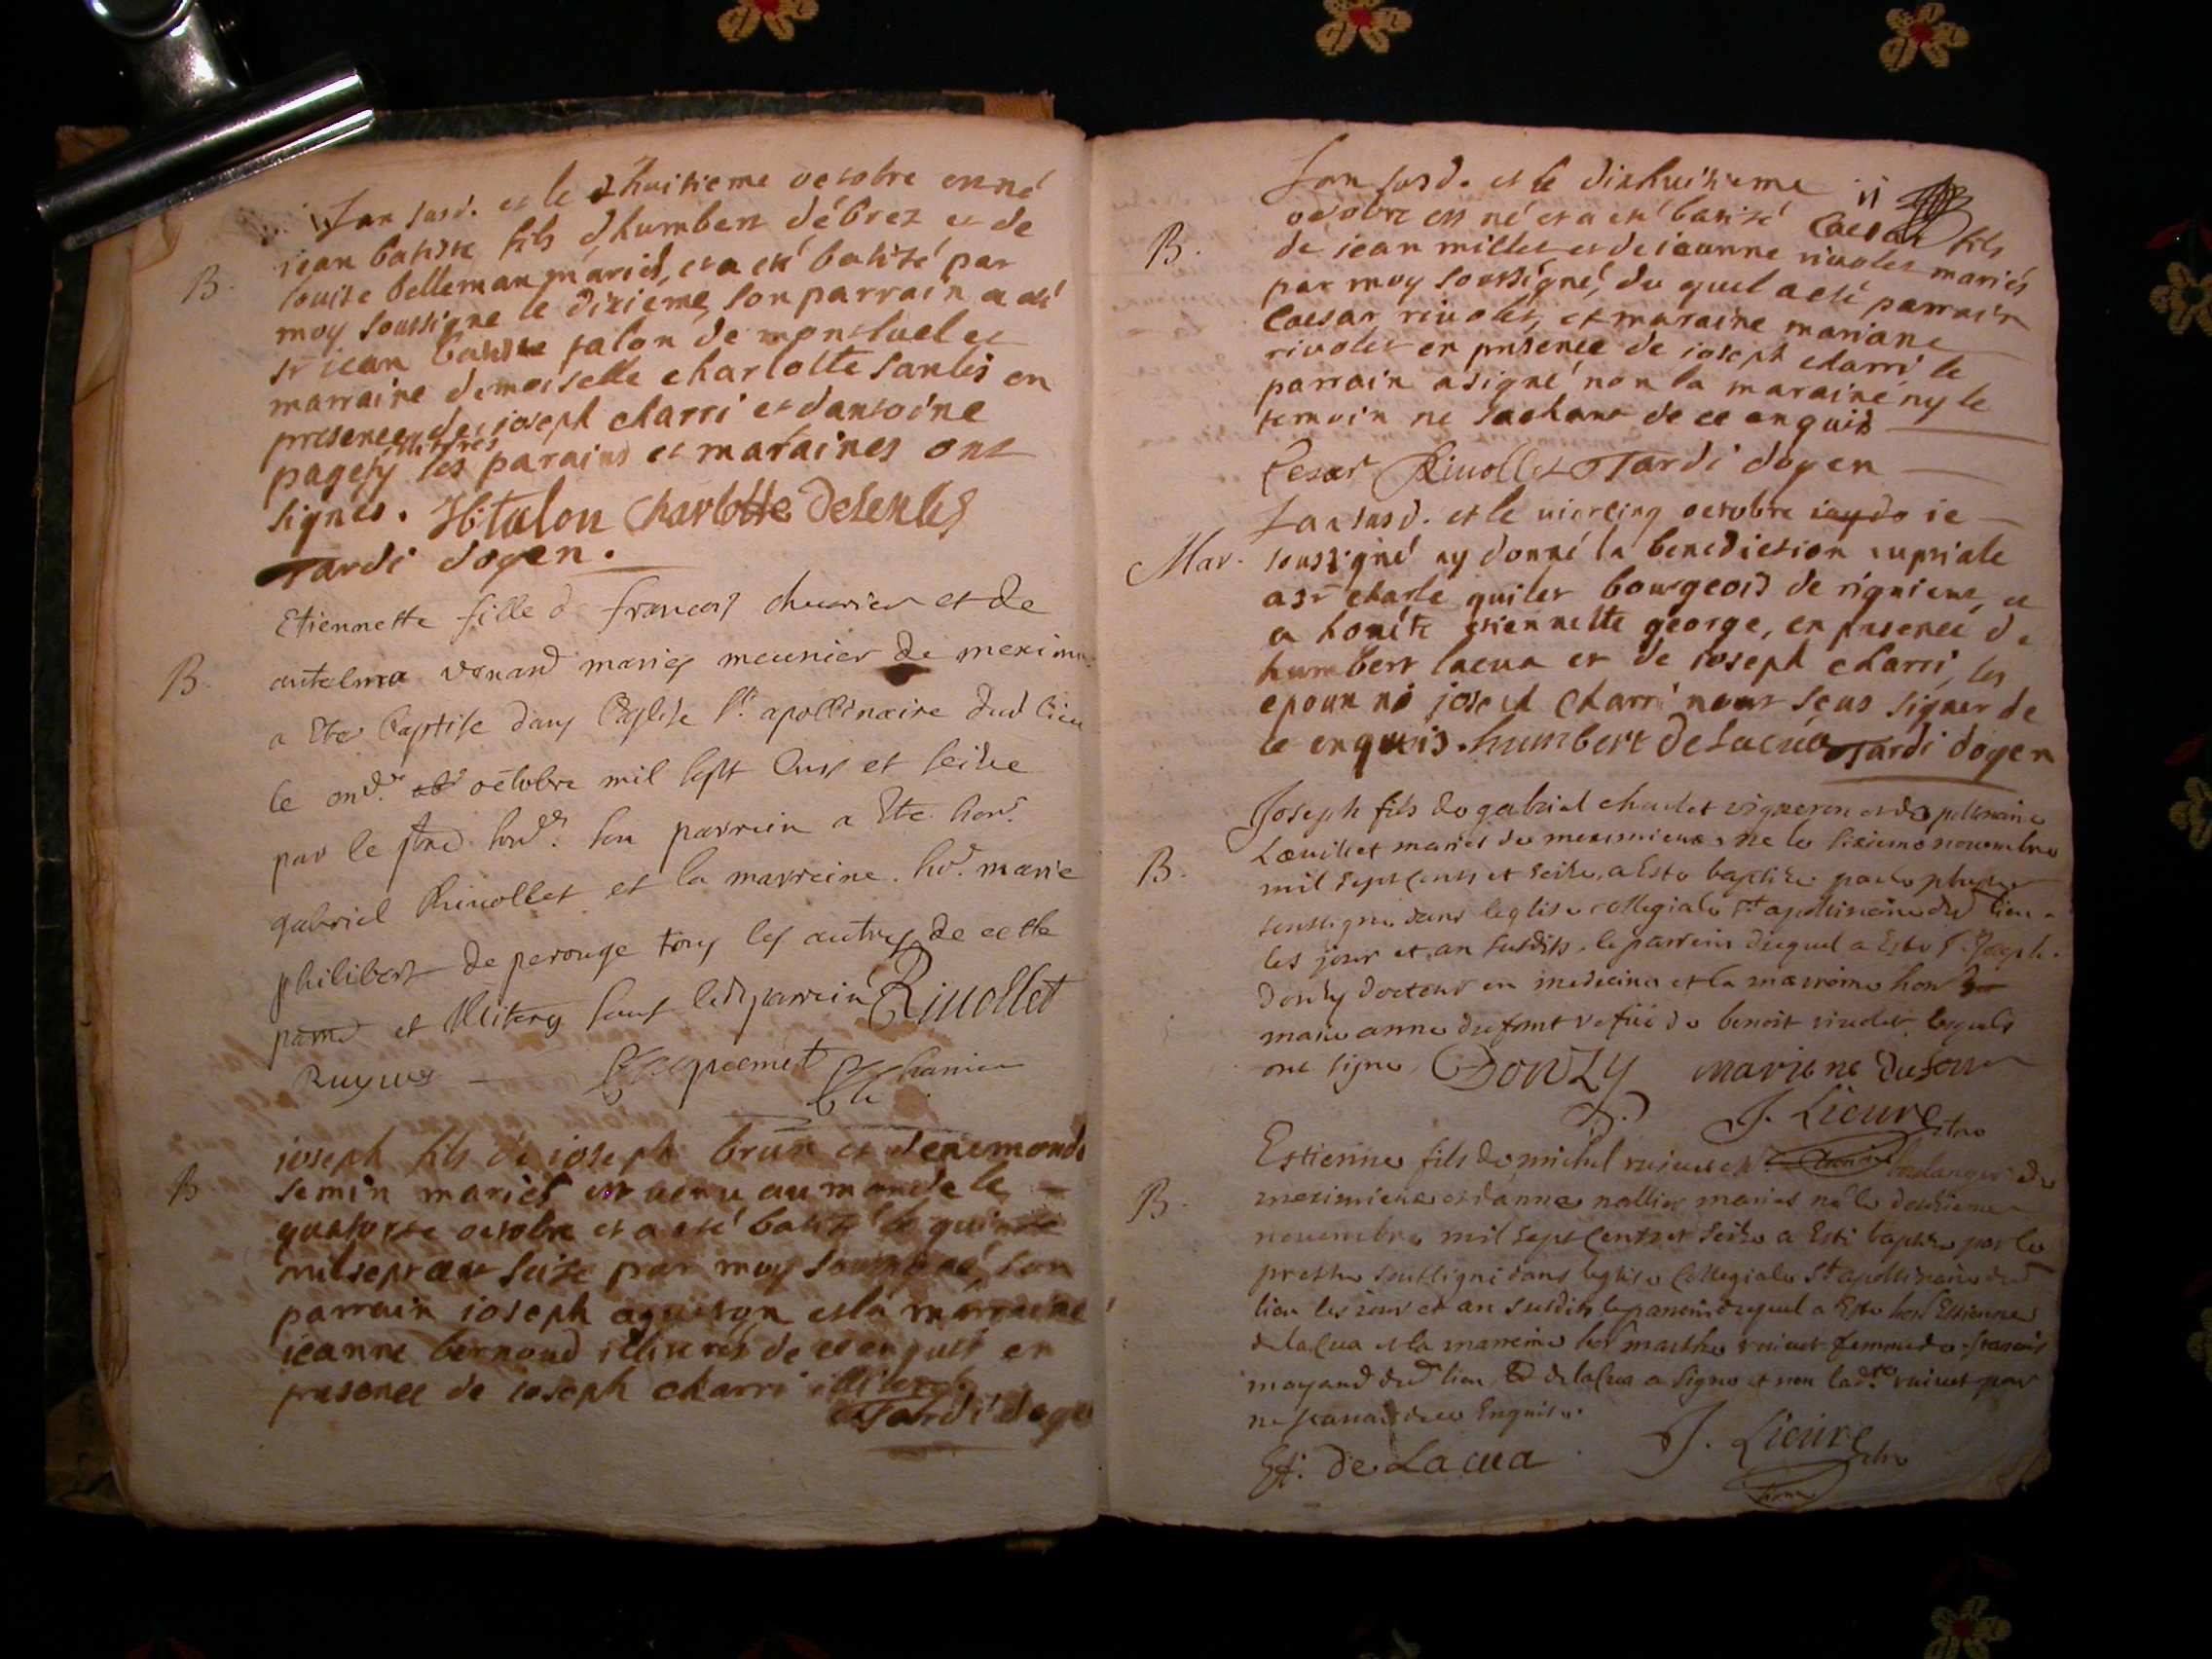 Lan susd. et le huitieme octobre est né
B. jean batiste fils d'humbert débrez et de
louise belleman mariés, et a eté batizé par
moy soussigne le diziéme, son parrain a été
sr jean batiste talon de montluel et
marraine demoiselle charlotte sanlis en
presence de joseph charri et dantoine
pagety illitrés les parains et maraines ont
signés. JB talon charlotte desenlis
Tardi doyen.
Etiennette fille de francois et de
B. venand mariez meunier de
a Ete Baptise dans l'Eglise St. apollinaire dud lieu
le octobre mil sept Cens et seize
par le son parrein a Ete hon.
gabriel Riuollet et la marreine. marie
philibert de perouge tous les autres de cette
et illiterez sauf led. parrein Riuollet
Ruynes
B. joseph fils de joseph brun et denemonde
semin mariés est venu au monde le
quatorze octobre et a eté batizé le quinze
mil sept cent seize par moy soussigné, son
parrain joseph et la marraine
jeanne bernoud illitérés de ce enquis en
presence de joseph charri illiteré
Tardi doye
Lan susd. et le dixhuitieme 11
octobre est né et a eté batizé Caesar fils
B. de jean millet et de jeanne riuolet mariés
par moy soussigné, du quel a eté parrain
Caesar riuolet, et maraine mariane
riuolet en presence de joseph charri le
parrain a signé non la maraine ny le
temoin ne sachant de ce enquis
Cesar Riuollet Tardi doyen
Lan susd. et le vintcinq octobre je
Mar. soussigné ay donné la benediction nuptiale
a sr charle quilet bourgeois de rignieux, et
a honête etiennette george, en presence de
humbert lacua et de joseph charri, les
epoux ni joseph charri n'ont seus signer de
ce enquis. humbert De Lacua Tardi doyen
Joseph fils de gabriel chudet vigneron et dapollinaire
B. mariés de meximieux, ne le sixieme novembre
mil sept cents et seize, a Este baptize par le
soussigne dans leglise collegiale St apollinaire dud lieu
les jour et an susdits, le parrein duquel a este Sr. Joseph
Donzy docteur en medecine et la marreine hon
marie anne dufour vefue de benoit lesquels
ont signe DONZY mariane dufour
J. Lieure ptre
Estienne fils de michel ruiuet boulanger de
B. meximieux et danne nallier mariés né le
novembre mil sept Cents et seize a Esté baptize par le
prestre soussigné dans leglise Collegiale St apollinaire dud
lieu les jour et an susdits le parrein duquel a Este hon Estienne
de lacua et la marreine hon marthe ruiuet femme de francois
mayand dud lieu, led delacua a signe et non lad.te ruiuet pour
ne scauoir de ce Enquise.
Est. De Lacua J. Lieure ptre